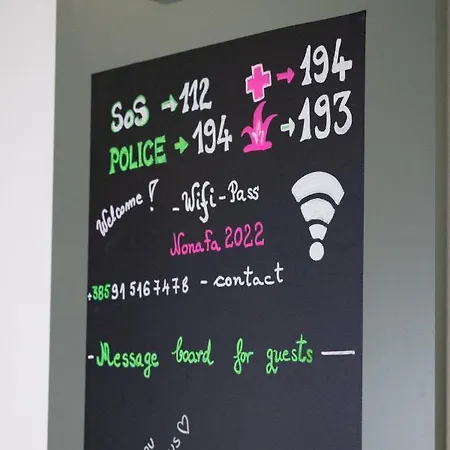 SOS → 112
→ 194
POLICE → 194
→ 193
Welcome!
- Wifi - Pass
Nonafa 2022
+385915167478 - contact
- Message board for guests -